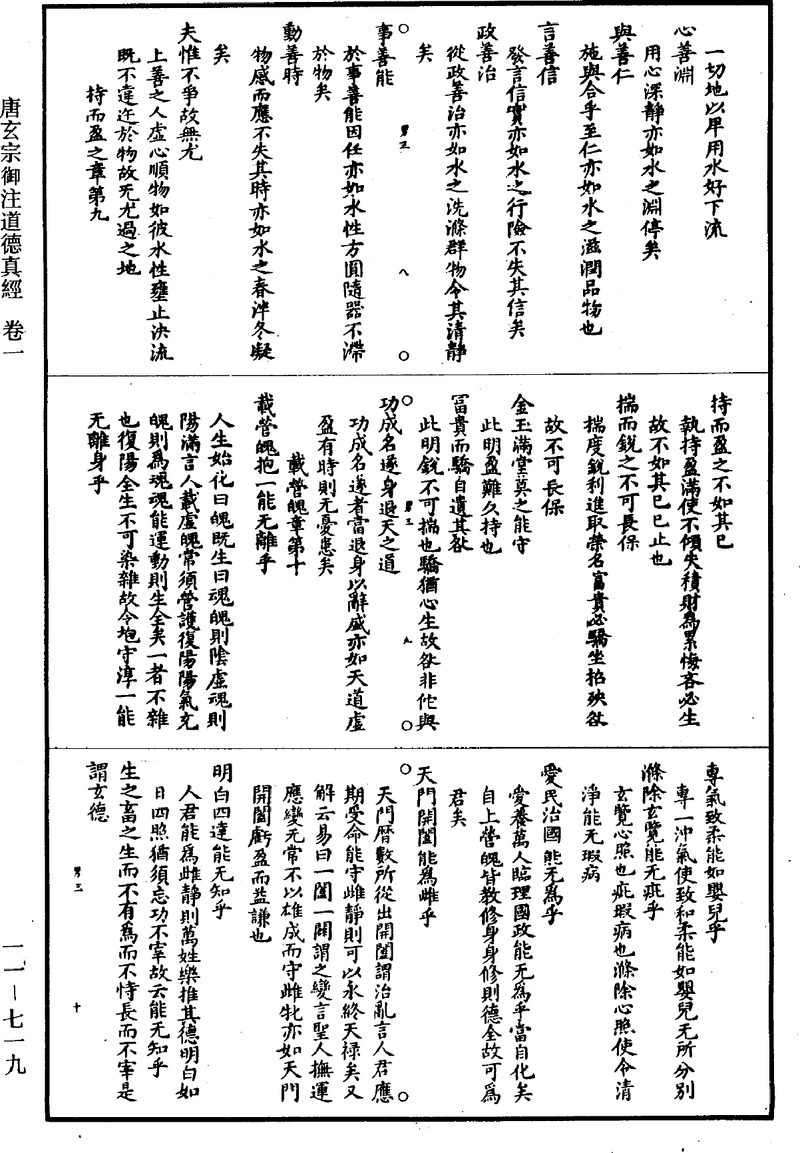 一切地以卑用水好下流
心善淵
用心深靜亦如水之淵停矣
與善仁
施與合乎至仁亦如水之滋潤品物也
言善信
發言信實亦如水之行險不失其信矣
政善治
從政善治亦如水之洗滌群物令其清靜
矣
事善能
於事善能因任亦如水性方圓隨器不滯
於物矣
動善時
物感而應不失其時亦如水之春泮冬凝
矣
夫惟不爭故無尤
上善之人虛心順物如彼水性壅止決流
既不違迕於物故无尤過之地
持而盈之章第九
八
持而盈之不如其已
執持盈滿使不傾失積財為累悔吝必生
故不如其已已止也
揣而銳之不可長保
揣度銳利進取榮名富貴必驕坐招殃咎
故不可長保
金玉滿堂莫之能守
此明盈難久持也
富貴而驕自遺其咎
此明銳不可揣也驕猶心生故咎非佗與
功成名遂身退天之道
功成名遂者當退身以辭盛亦如天道虛
盈有時則无憂患矣
載營魄章第十
載營魄抱一能无離乎
人生始化曰魄既生曰魂魄則陰虛魂則
陽滿言人載虛魄常須營護復陽陽氣充
魄則為魂魂能運動則生全矣一者不雜
也復陽全生不可染雜故令抱守淳一能
无離身乎
九
專氣致柔能如嬰兒乎
專一沖氣使致和柔能如嬰兒无所分別
滌除玄覽能无疵乎
玄覽心照也疵瑕病也滌除心照使令清
淨能无瑕病
愛民治國能无為乎
愛養萬人臨理國政能无為乎當自化矣
自上營魄皆教修身身修則德全故可為
君矣
天門開闔能為雌乎
天門曆數所從出開闔謂治亂言人君應
期受命能守雌靜則可以永終天祿矣又
解云易曰一闔一開謂之變言聖人撫運
應變无常不以雄成而守雌牝亦如天門
開闔虧盈而益謙也
明白四達能无知乎
人君能為雌靜則萬姓樂推其德明白如
日四照猶須忘功不宰故云能无知乎
生之畜之生而不有為而不恃長而不宰是
謂玄德
十
唐玄宗御注道德真經 卷一
一一—七一九